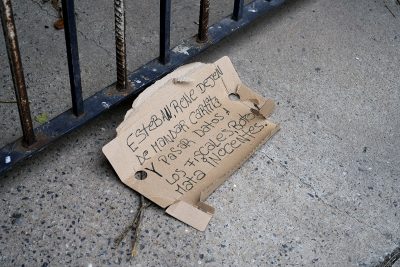 ESTEBAN RONE DEJEN
DE MANDAR CARTITA
Y PASAR DATOS!
LOS FISCALES ROBOT
MATA INOCENTES.